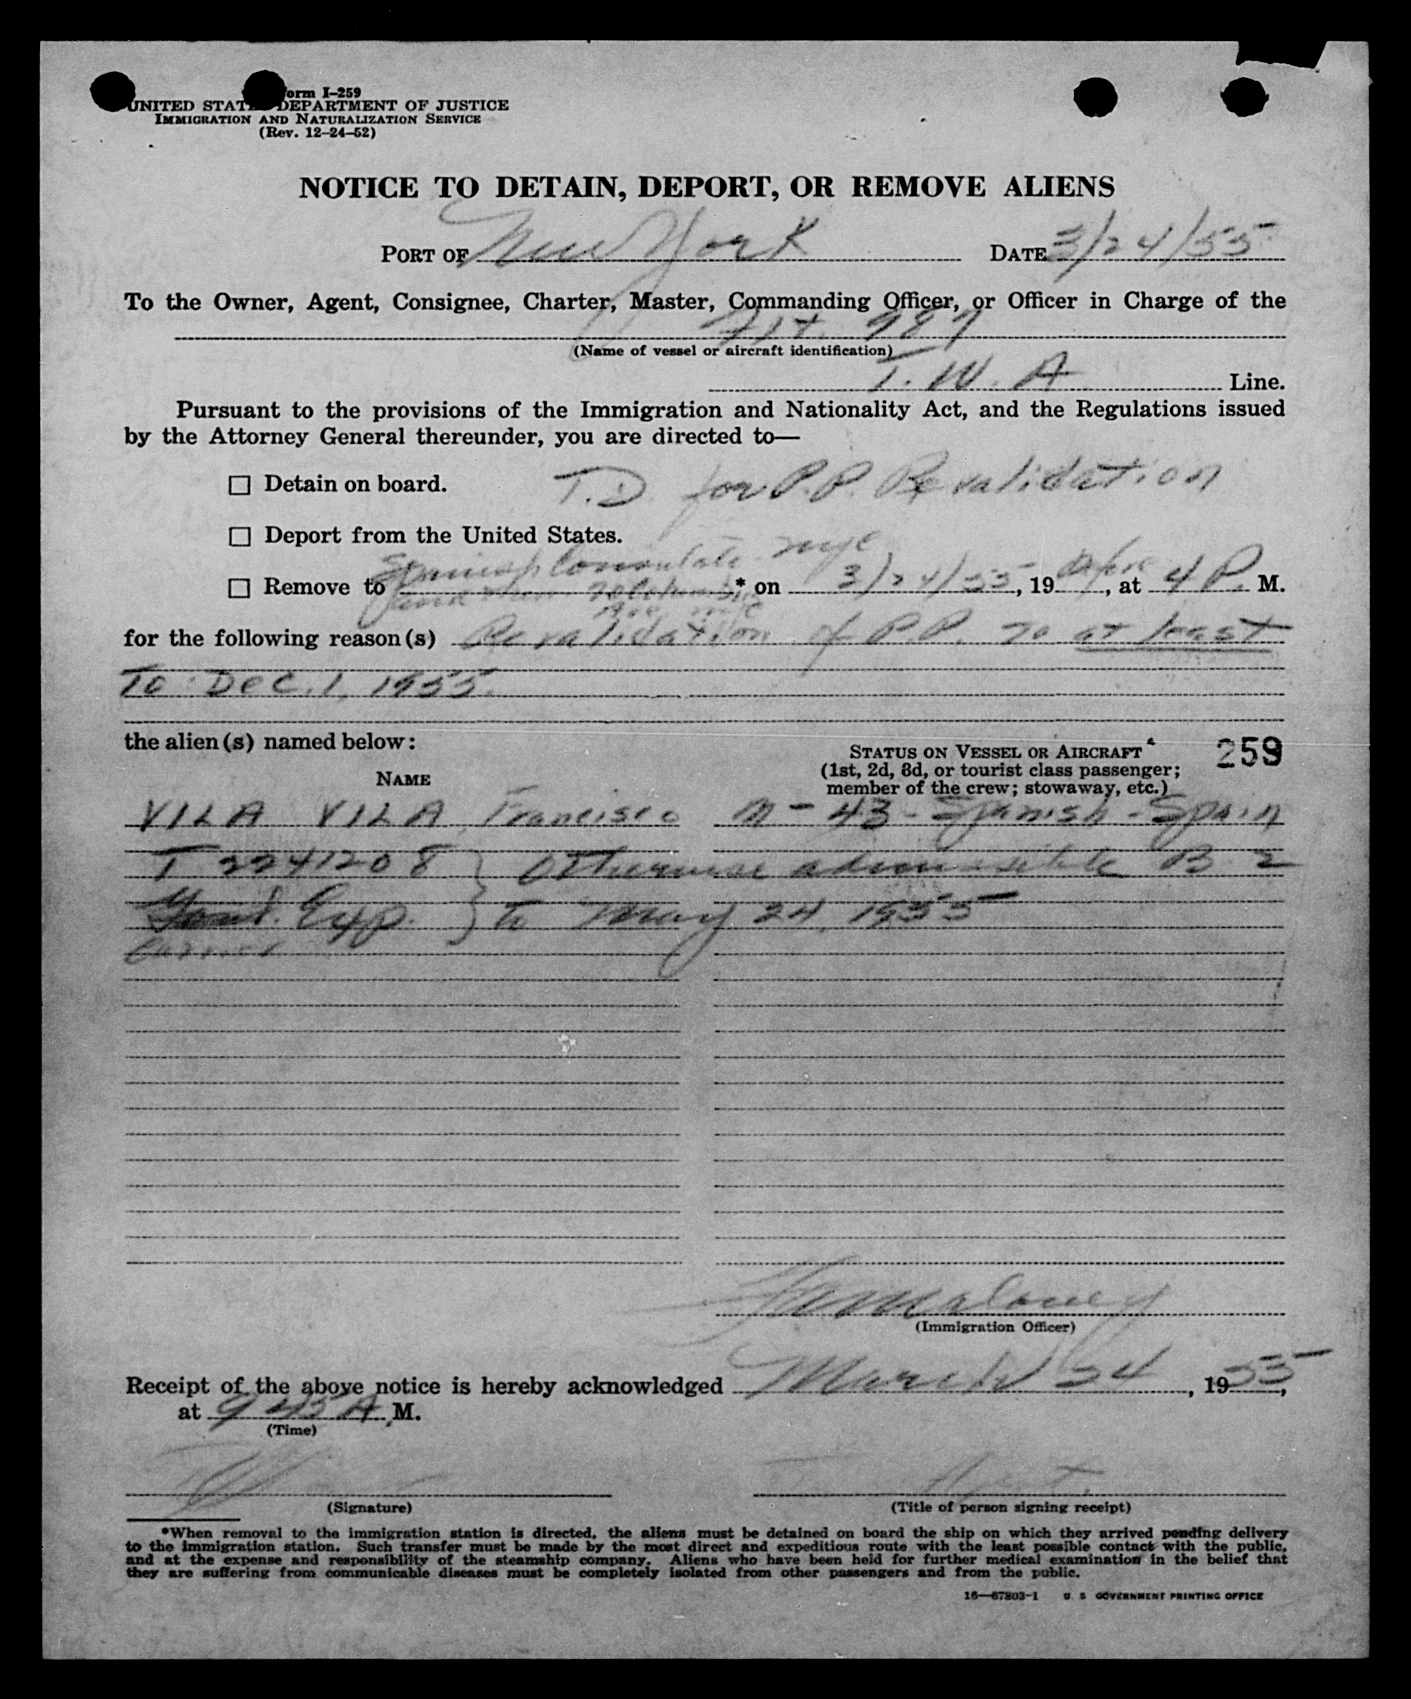 Form I-259
UNITED STATES DEPARTMENT OF JUSTICE
IMMIGRATION AND NATURALIZATION SERVICE
(Rev. 12-24-52)
NOTICE TO DETAIN, DEPORT, OR REMOVE ALIENS
PORT OF New York DATE 3/24/55
To the Owner, Agent, Consignee, Charter, Master, Commanding Officer, or Officer in Charge of the
Flt. 987
(Name of vessel or aircraft identification)
T. W. A Line.
Pursuant to the provisions of the Immigration and Nationality Act, and the Regulations issued
by the Attorney General thereunder, you are directed to—
☐ Detain on board. T.D. for P.P. Revalidation
☐ Deport from the United States.
Spanish Consulate NYC
☐ Remove to * on 3/24/55, 19 , at 4 P. M.
for the following reason(s) Revalidation of P.P. To at least
To: Dec. 1, 1955.
the alien(s) named below:
259
NAME
STATUS ON VESSEL OR AIRCRAFT
(1st, 2d, 3d, or tourist class passenger;
member of the crew; stowaway, etc.)
VILA VILA, Francisco M - 43 - Spanish - Spain
T 2241208 } Otherwise admissible B-2
Exp. } to May 24, 1955
(Immigration Officer)
Receipt of the above notice is hereby acknowledged March 24, 1955,
at 9 45 A. M.
(Time)
(Signature)
(Title of person signing receipt)
*When removal to the immigration station is directed, the aliens must be detained on board the ship on which they arrived pending delivery
to the immigration station. Such transfer must be made by the most direct and expeditious route with the least possible contact with the public,
and at the expense and responsibility of the steamship company. Aliens who have been held for further medical examination in the belief that
they are suffering from communicable diseases must be completely isolated from other passengers and from the public.
16—67803-1 U. S. GOVERNMENT PRINTING OFFICE